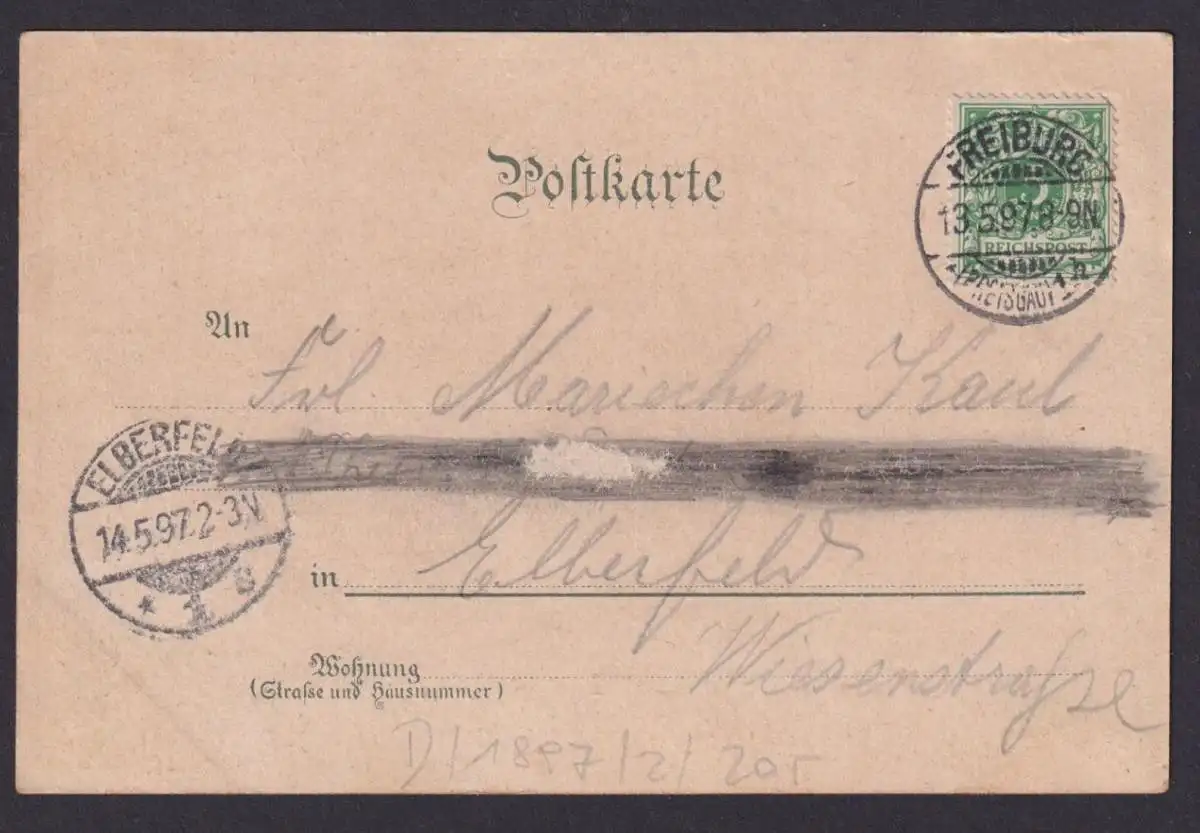 Postkarte
FREIBURG
13.5.97.8-9N
5
REICHSPOST
An
Frl. Mariechen Kaul
ELBERFELD
14.5.97.2-3N
* 1 g
in Elberfeld
Wohnung
(Straße und Hausnummer)
Wiesenstraße
D/1897/2/20r